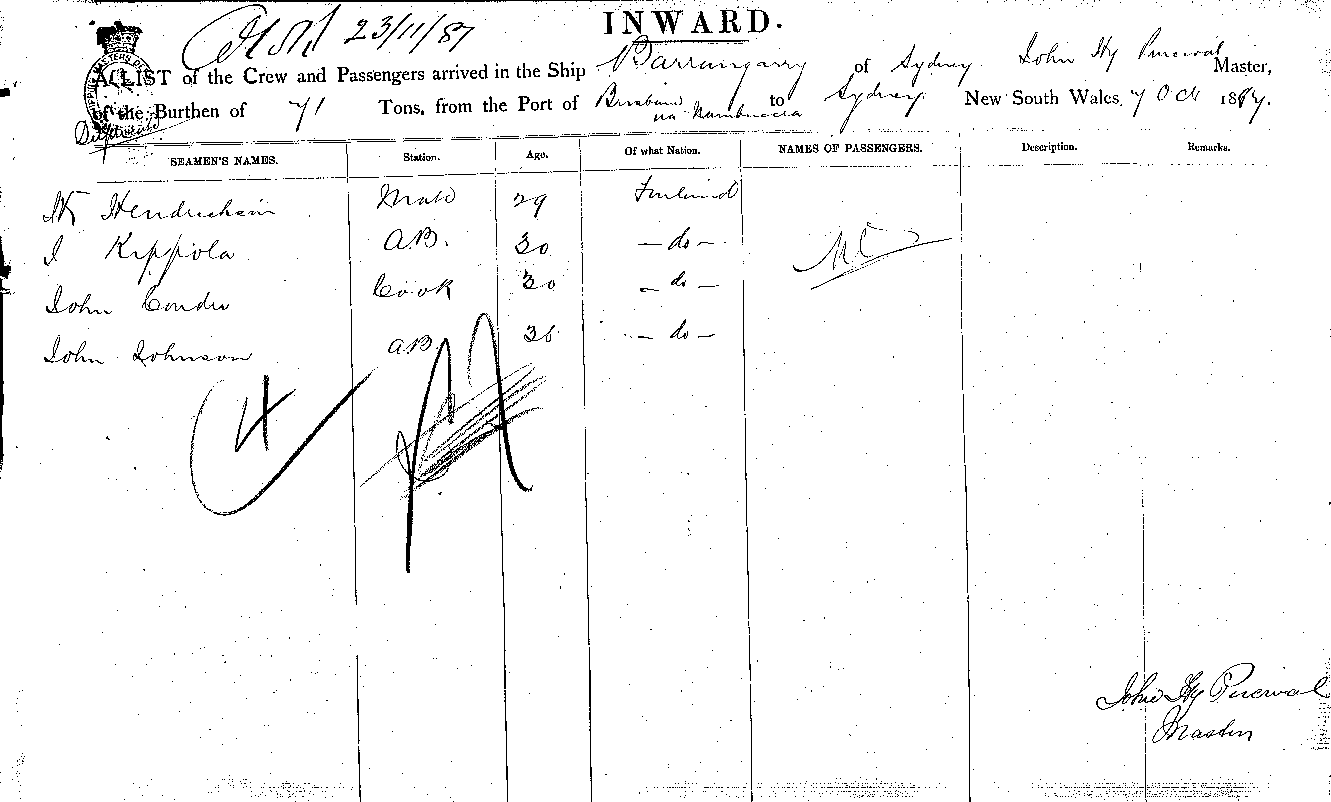 INWARD.
23/11/87
A LIST of the Crew and Passengers arrived in the Ship Barrangarry of Sydney John Hy Percival Master,
of the Burthen of 71 Tons, from the Port of Brisbane via Nambucca to Sydney New South Wales, 7 Oct 1887.
SEAMEN'S NAMES. Station. Age. Of what Nation. NAMES OF PASSENGERS. Description. Remarks.
Mate 29 Finland
J Kippola A.B. 30 - do -
John Cook 30 - do -
John Johnson A.B. - do -
4
John Hy Percival
Master